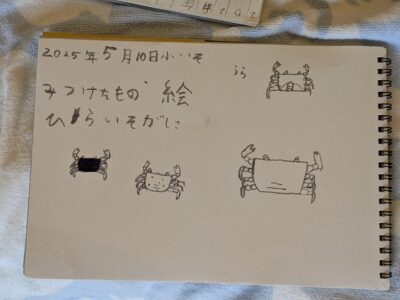 2025年5月10日小いそ
みつけたもの 絵
ひらいそがに
うら